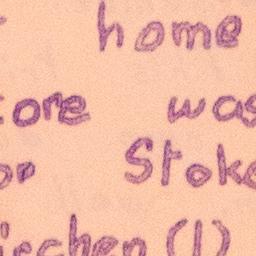 home
ore was
or Stoke
irchen (1)